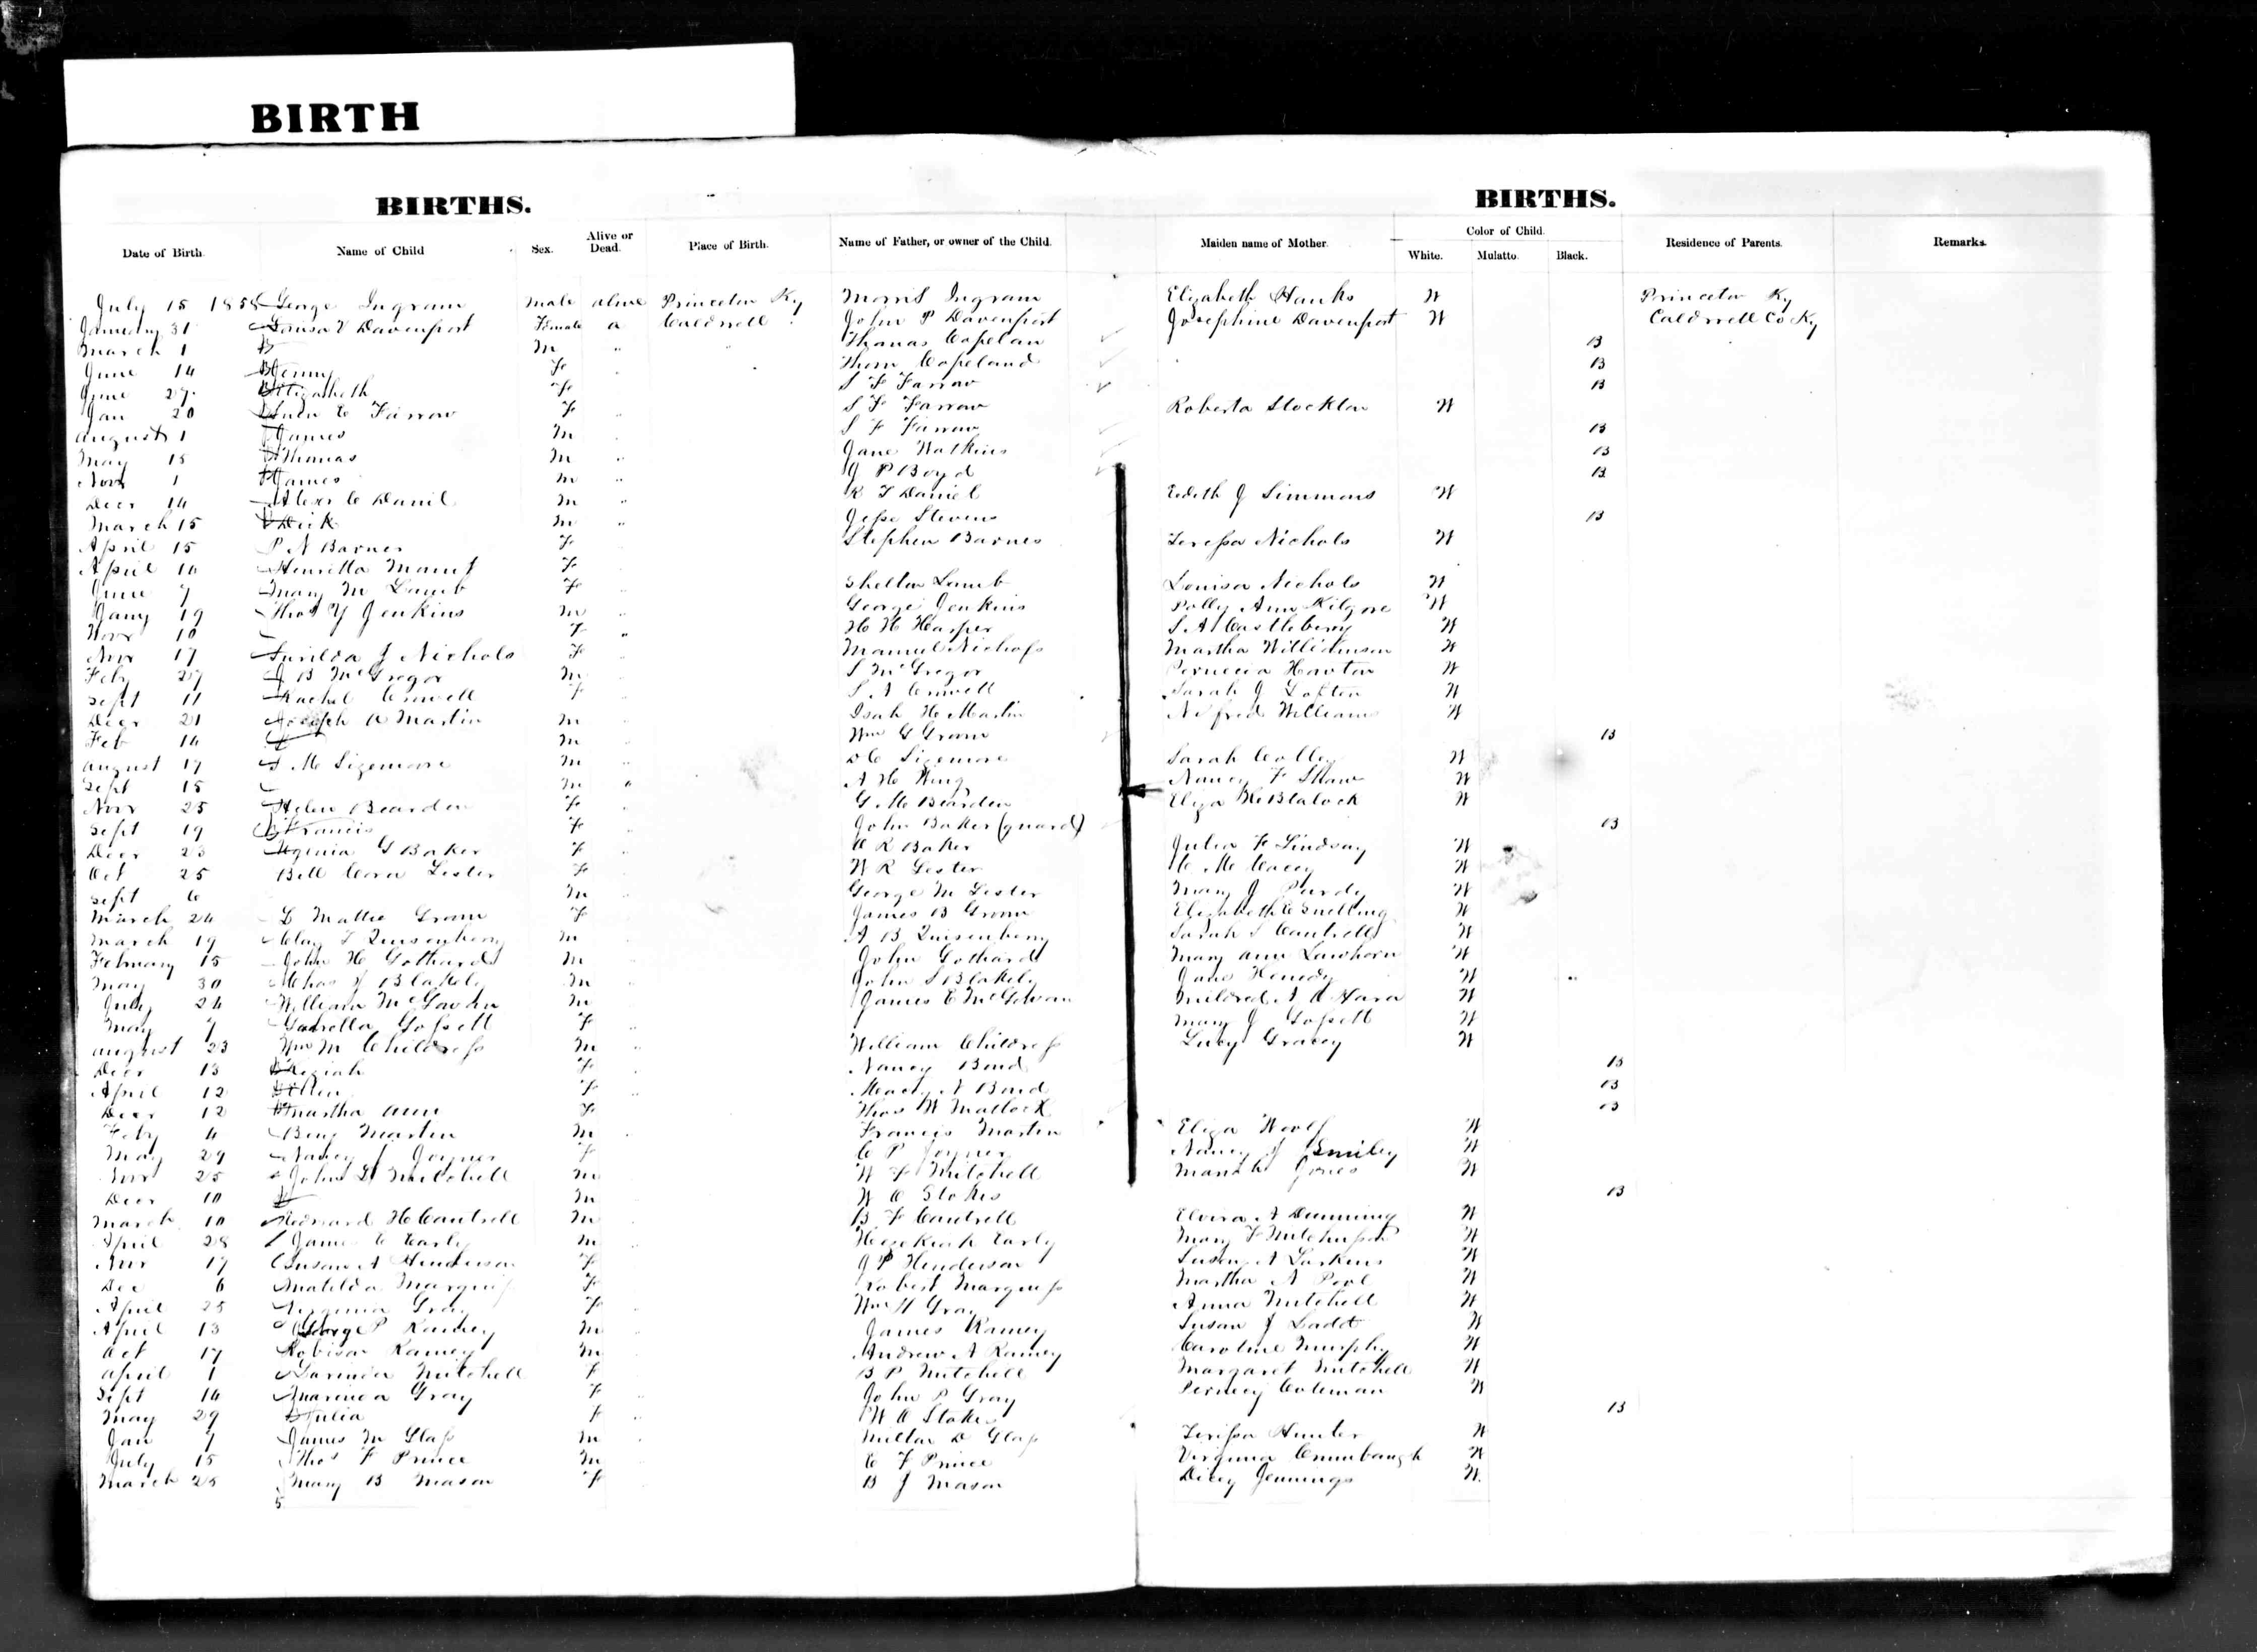 BIRTH
BIRTHS. BIRTHS.
Date of Birth. Name of Child Sex. Alive or Dead. Place of Birth. Name of Father, or owner of the Child. Maiden name of Mother. Color of Child. White. Mulatto. Black. Residence of Parents. Remarks.
July 15 1858 George Ingram male alive Princeton Ky Morris Ingram Elizabeth Hanks W Princeton Ky
January 31 Davenport Female a Caldwell John P Davenport Josephine Davenport W Caldwell Co Ky
March 1 B M " Thomas Copelan B
June 14 B Jenny F Thom Copeland B
June 27 B Elizabeth F S F Farrow B
Jan 20 Farrow F " S F Farrow Roberta Stockton W
August 1 James M S F Farrow B
May 15 Thomas M " Jane Watkins B
Novr 1 James M " J P Boyd B
Decr 14 Alexr C Danil M " R T Daniel Edith J Simmons W
March 15 Dick M " Jesse Stevens B
April 15 P N Barnes F Stephen Barnes Teressa Nichols W
April 10 Henrietta F
June 7 Mary M Lamb F Shelton Lamb Louisa Nichols W
Jany 19 Thos Y Jenkins M " George Jenkins Polly Ann Kilgore W
Novr 10 F " H H Harper S A Castleberry W
Nov 17 J Nichols F Manuel Nichols Martha Williamson W
Feby 27 J B McGregor M S McGregor Howton W
Sept 11 Rachel F S A Sarah J W
Decr 21 Joseph A Martin M Isah H Martin Williams W
Feb 14 M Wm G Groom B
August 17 M Sizemore M " Sizemore Sarah W
Sept 15 M " A H King Nancy F Shaw W
Nov 25 Helen Bearden F G M Bearden Eliza Blalock W
Sept 19 B Francis F John Baker (guard) B
Decr 23 G Baker F " R Baker Julia F Lindsay W
Oct 25 Bell Cora Lester F W R Lester W
Sept 6 M George M Lester Mary J Purdy W
March 24 L Mattie Groom F James B Groom Elizabeth C Snelling W
March 19 Clay T Quisenberry M A B Quisenberry Sarah S Cantrell W
February 15 John H Gothard M John Gothard Mary Ann Lawhorn W
May 30 Chas J Blakely M John S Blakely Jane Kenedy W
July 24 William McGowen M James E McGowan Mildred A O Hara W
May 7 Gossett F Mary J Gossett W
August 23 Wm M Childress M William Childress Lucy Gracey W
Decr 13 Keziah F Nancy Bond B
April 12 Ellen F Bond B
Decr 12 Martha Ann F Thos W Matlock B
Feby 4 Benj Martin M Francis Martin Eliza Woolf W
May 29 Nancy J Joyner F C P Joyner Nancy J Smiley W
Nov 25 John D Mitchell M W F Mitchell Jones W
Decr 10 M W C Stokes B
March 10 Edward H Cantrell M B F Cantrell Elvira A Dunning W
April 28 James C Early M Hezekiah Early Mary F W
Nov 17 Susan A Henderson F J P Henderson Susan A Larkins W
Dec 6 Matilda Marquis F Robert Marquess Martha A Pool W
April 25 Virginia Gray F Wm H Gray Anna Mitchell W
April 13 George P Ramey M James Ramey Susan J Ladd W
Oct 17 Robison Ramey M Andrew A Ramey Caroline Murphy W
April 1 Mitchell F B P Mitchell Margaret Mitchell W
Sept 14 Gray F John P Gray Coleman W
May 29 B Julia F W C Stokes B
Jan 7 James M Glass M Milton D Glass Terissa Hunter W
July 15 Thos F Prince M C F Prince Virginia Crumbaugh W
March 25 Mary B Mason F B J Mason Dicey Jennings W
5